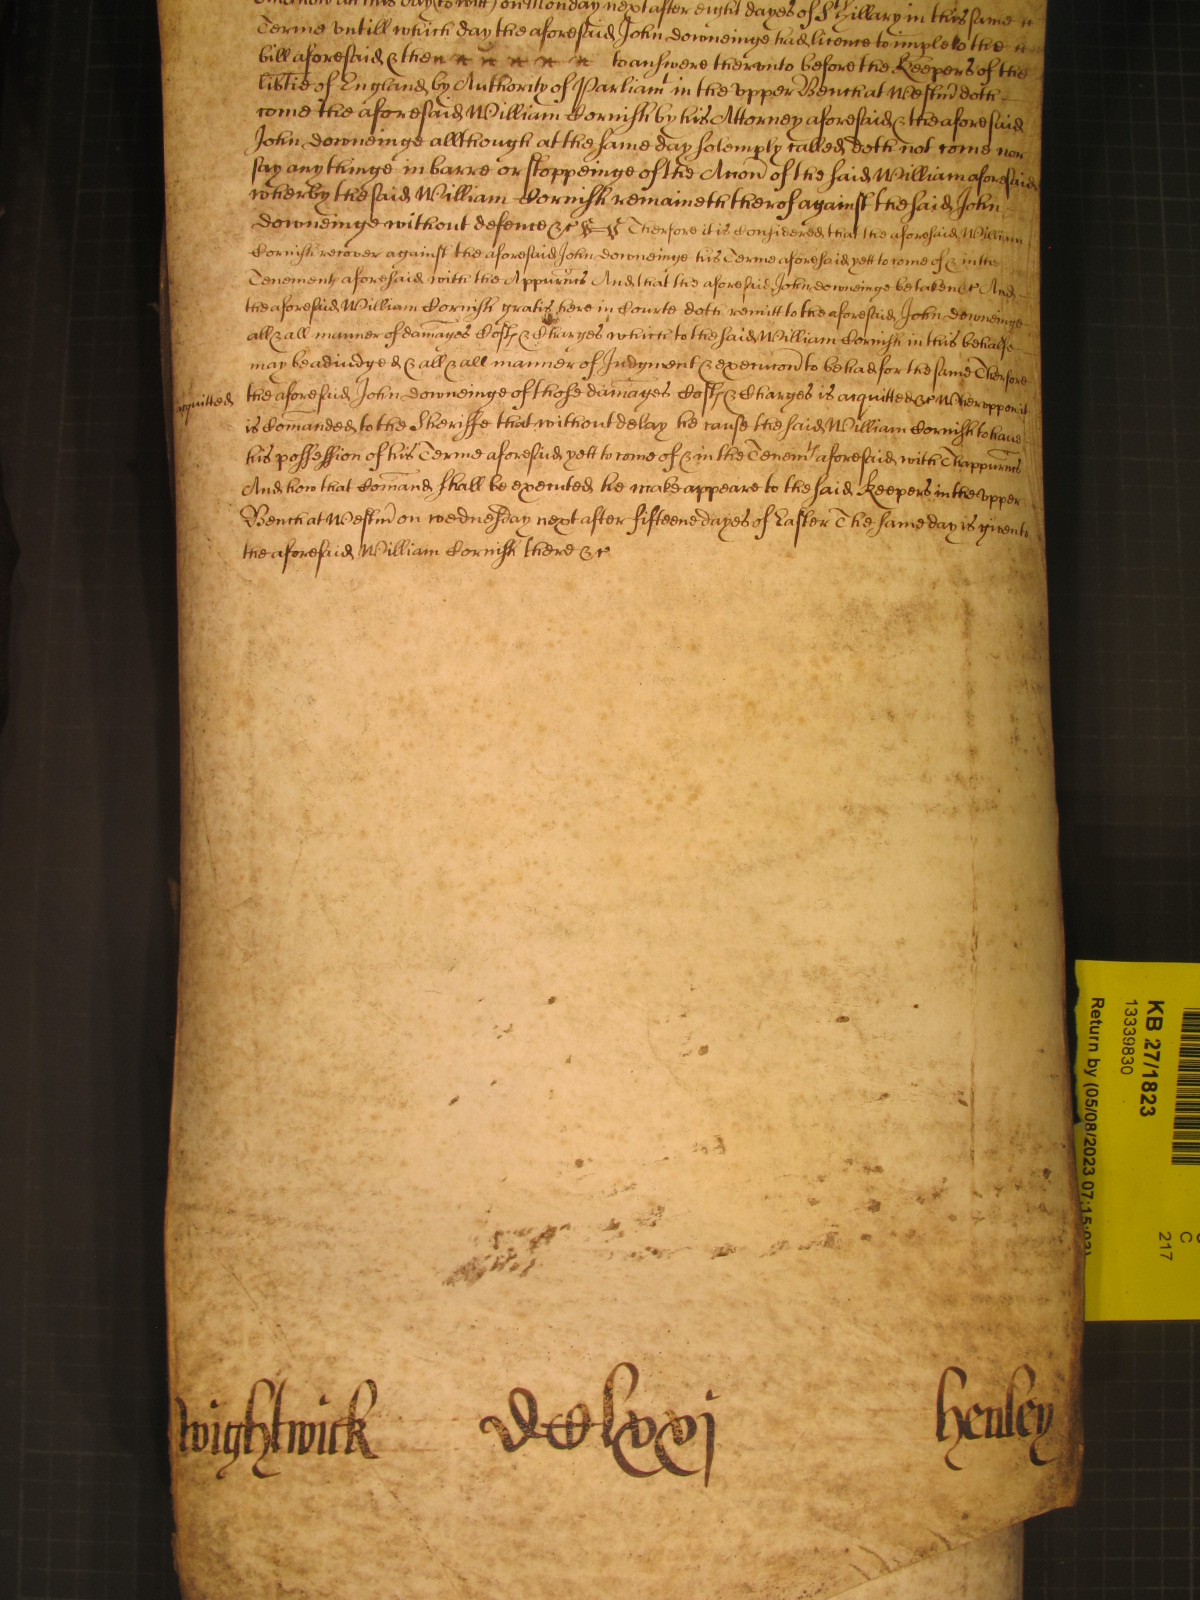 now at this day (to witt) on Monday next after eight dayes of St Hillary in this same
Terme untill which day the aforesaid John Downeinge had licence to imple to the
bill aforesaid & then to answere thervnto before the Keepers of the
lib'tie of England by Authority of Parliamt in the vpper Bench at Westm doth
come the aforesaid William Cornish by his Attorney aforesaid & the aforesaid
John Downeinge allthough at the same day solemply called doth not come nor
say any thinge in barre or stoppeinge of the Accon of the said William aforesaid
wherby the said William Cornish remaineth therof against the said John
Downeinge without defence &c Therfore it is Considered that the aforesaid William
Cornish recover against the aforesaid John Downeinge his Terme aforesaid yett to come of & in the
Tenements aforesaid with the Appurtn̄cs And that the aforesaid John Downeinge be taken &c And
the aforesaid William Cornish gratis here in Courte doth remitt to the aforesaid John Downeinge
all & all manner of damages Costs & Charges which to the said William Cornish in this behalfe
may be adiudged & all & all manner of Judgment & execucon to be had for the same Therfore
acquitted
the aforesaid John Downeinge of those damages Costs & Charges is acquitted &c Whervppon it
is Comanded to the Sheriffe that without delay he cause the said William Cornish to haue
his possession of his Terme aforesaid yett to come of & in the Tenemts aforesaid with Thappurtn̄cs
And how that Comand shall be executed he make appeare to the said Keepers in the vpper
Bench at Westm on wednesday next after fifteene dayes of Easter The same day is given to
the aforesaid William Cornish there &c
Wightwick
DCClxxj
Henley
KB 27/1823
13339830
Return by (05/08/2023 07:15:03)
C
217